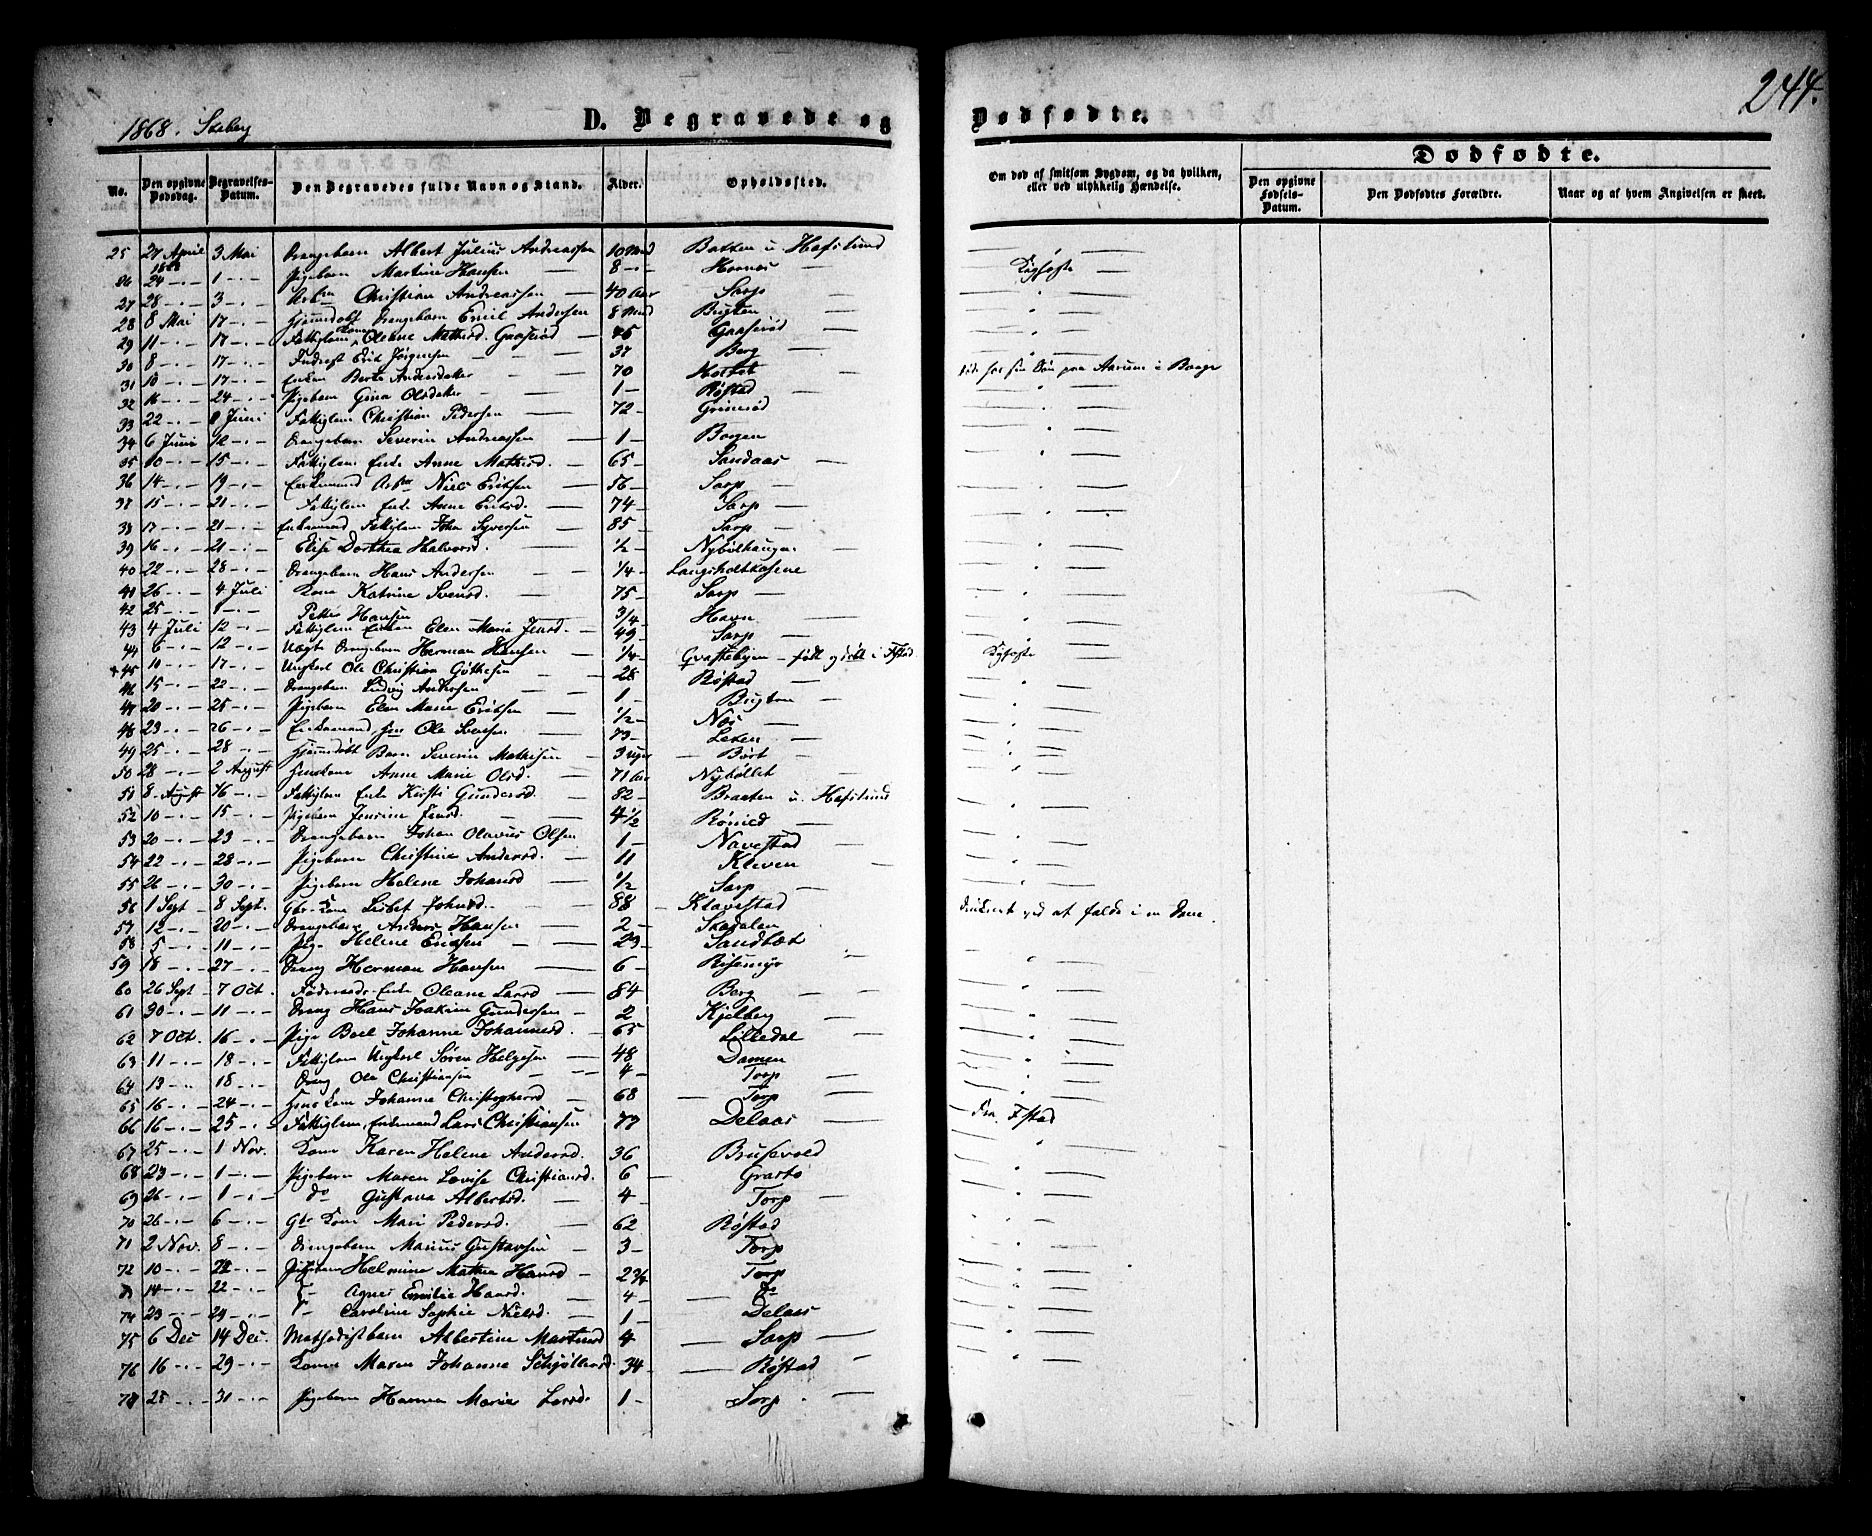 244.
1868. Skeberg
D. Begravede og Dødfødte.
Dødfødte.
No. Den opgivne Dødsdag. Begravelses-Datum. Den Begravedes fulde Navn og Stand. Alder. Opholdssted. Om død af smitsom Sygdom, og da hvilken, eller ved ulykkelig Hændelse. Den opgivne Fødsels-Datum. Den Dødfødtes Forældre. Naar og af hvem Angivelsen er skeet.
25 27 April 1868 3 Mai Drengebarn Albert Julius Andreassen 10 Mnd Bakken u. Hafslund
26 24 - 1 - Pigebarn Martine Hansen 8 - Hornes Kighoste
27 28 - 3 - Christian Andreassen 40 Aar Sarp
28 8 Mai 17 - Hjemmedøbt Drengebarn Emil Andersen 8 Mnd Bugten
29 11 - 17 - Fattiglem Kone Oleane Mathisd. Gaaserød 45 Gaaserød
30 8 - 17 - Inderst Erik Jørgensen 37 Berg
31 10 - 17 - Enken Berte Andersdatter 70 Døde hos sin Søn paa Aarum i Borge
32 16 - 24 - Pigebarn Gina Olsdatter 1 - Røstad
33 22 - 8 Juni Fattiglem Christian Pedersen 72 - Grimsrød
34 6 Juni 12 - Drengebarn Severin Andreassen 1 - Borgen
35 10 - 15 - Fattiglem Enke Anne Mathisd. 65 - Sandaas
36 14 - 19 - Enkemand Niels Eriksen 56 - Sarp
37 15 - 21 - Fattiglem Enke Anne Eriksd. 74 - Sarp
38 17 - 21 - Enkemand Fattiglem Johan Syversen 85 - Sarp
39 16 - 21 - Elise Dorthea Halvorsd. 1/2 - Nybølhaugen
40 22 - 28 - Drengebarn Hans Andersen 1/4 - Langsholtkasene
41 26 - 4 Juli Kone Katrine Svensd. 75 - Sarp
42 25 - 1 - Petter Hansen 3/4 - Havn
43 4 Juli 12 - Fattiglem Enken Elen Maria Jensd. 49 - Sarp
44 6 - 12 - Uægte Drengebarn Herman Hansen 1/4 - født og død i Fstad Kighoste
+45 10 - 17 - Ungkarl Ole Christian Gøthesen 28 Røstad
46 15 - 22 - Drengebarn Ludvig Andersen 1 - Bugten
47 20 - 25 - Pigebarn Elen Marie Eriksen 1/2 - Nøs
48 23 - 26 - Enkemand Ole Svensen 73 - Leken
49 25 - 28 - Hjemmedøbt Barn Severin Mathisen 3 uger Bøst
50 28 - 2 August Huuskone Anne Marie Olsd. 71 Aar Nybøllet
51 8 August 16 - Fattiglem Enke Kirsti Gundersd. 82 - Braaten u. Hafslund
52 10 - 15 - Pigebarn Jensine Jensd. 4 1/2 Rømed
53 20 - 23 - Drengebarn Johan Olavus Olsen 1 - Navestad
54 22 - 28 - Pigebarn Christine Andersd. 11 Kleven
55 26 - 30 - Pigebarn Helene Johansd 1/2 - Sarp
56 1 Sept 8 Sept. Gbr. Kone Lisbet Johnsd. 88 Klavestad
57 12 - 20 - Drengebarn Anders Hansen 2 - Stadalen Druknet ved at falde i en Dam.
58 5 - 11 - Pige Helene Eriksen 23 - Sandbæk
59 18 - 27 - Dreng Herman Hansen 6 - Risemyr
60 26 Sept 7 Oct. Føderaads-Enke Oleane Larsd 84 Berg
61 30 - 11 - Dreng Hans Joakim Gundersen 2 Kjelberg
62 7 Oct. 16 - Pige Boel Johanne Johannesd. 65 Lilledal
63 11 - 18 - Fattiglem Ungkarl Søren Helgesen 48 Damen
64 13 - 18 - Dreng Ole Christiansen 4 - Torp
65 16 - 24 - Huus Kone Johanne Christophersd 68 Torp
66 16 - 25 - Fattiglem, Enkemand Lars Christiansen 77 Delaas Fra Fstad
67 25 - 1 Nov. Kone Karen Helene Andersd. 36 Brusevold
68 23 - 1 - Pigebarn Maren Lovise Christiansd. 6 Grasto
69 26 - 1 - do Gustava Albertsd. 4 - Torp
70 26 - 6 - Gbr Kone Mari Pedersd. 62 Røstad
71 2 Nov. 8 - Drengebarn Marius Gustavsen 3 - Torp
72 10 - 22 - Pigebarn Helmine Mathea Hansd 2 3/4 Torp
73 14 - 22 - Agnes Emilie Hansd. 4 - do
74 23 - 29 - Caroline Sophie Nielsd. 1 - Delaas
75 6 Dec 14 Dec. Methodistbarn Albertine Martinsd 4 Sarp
76 16 - 29 - Kone Maren Johanne Schjøllersd. 34 - Røstad
77 25 - 31 - Pigebarn Hanna Maria Larsd. 1 - Sarp